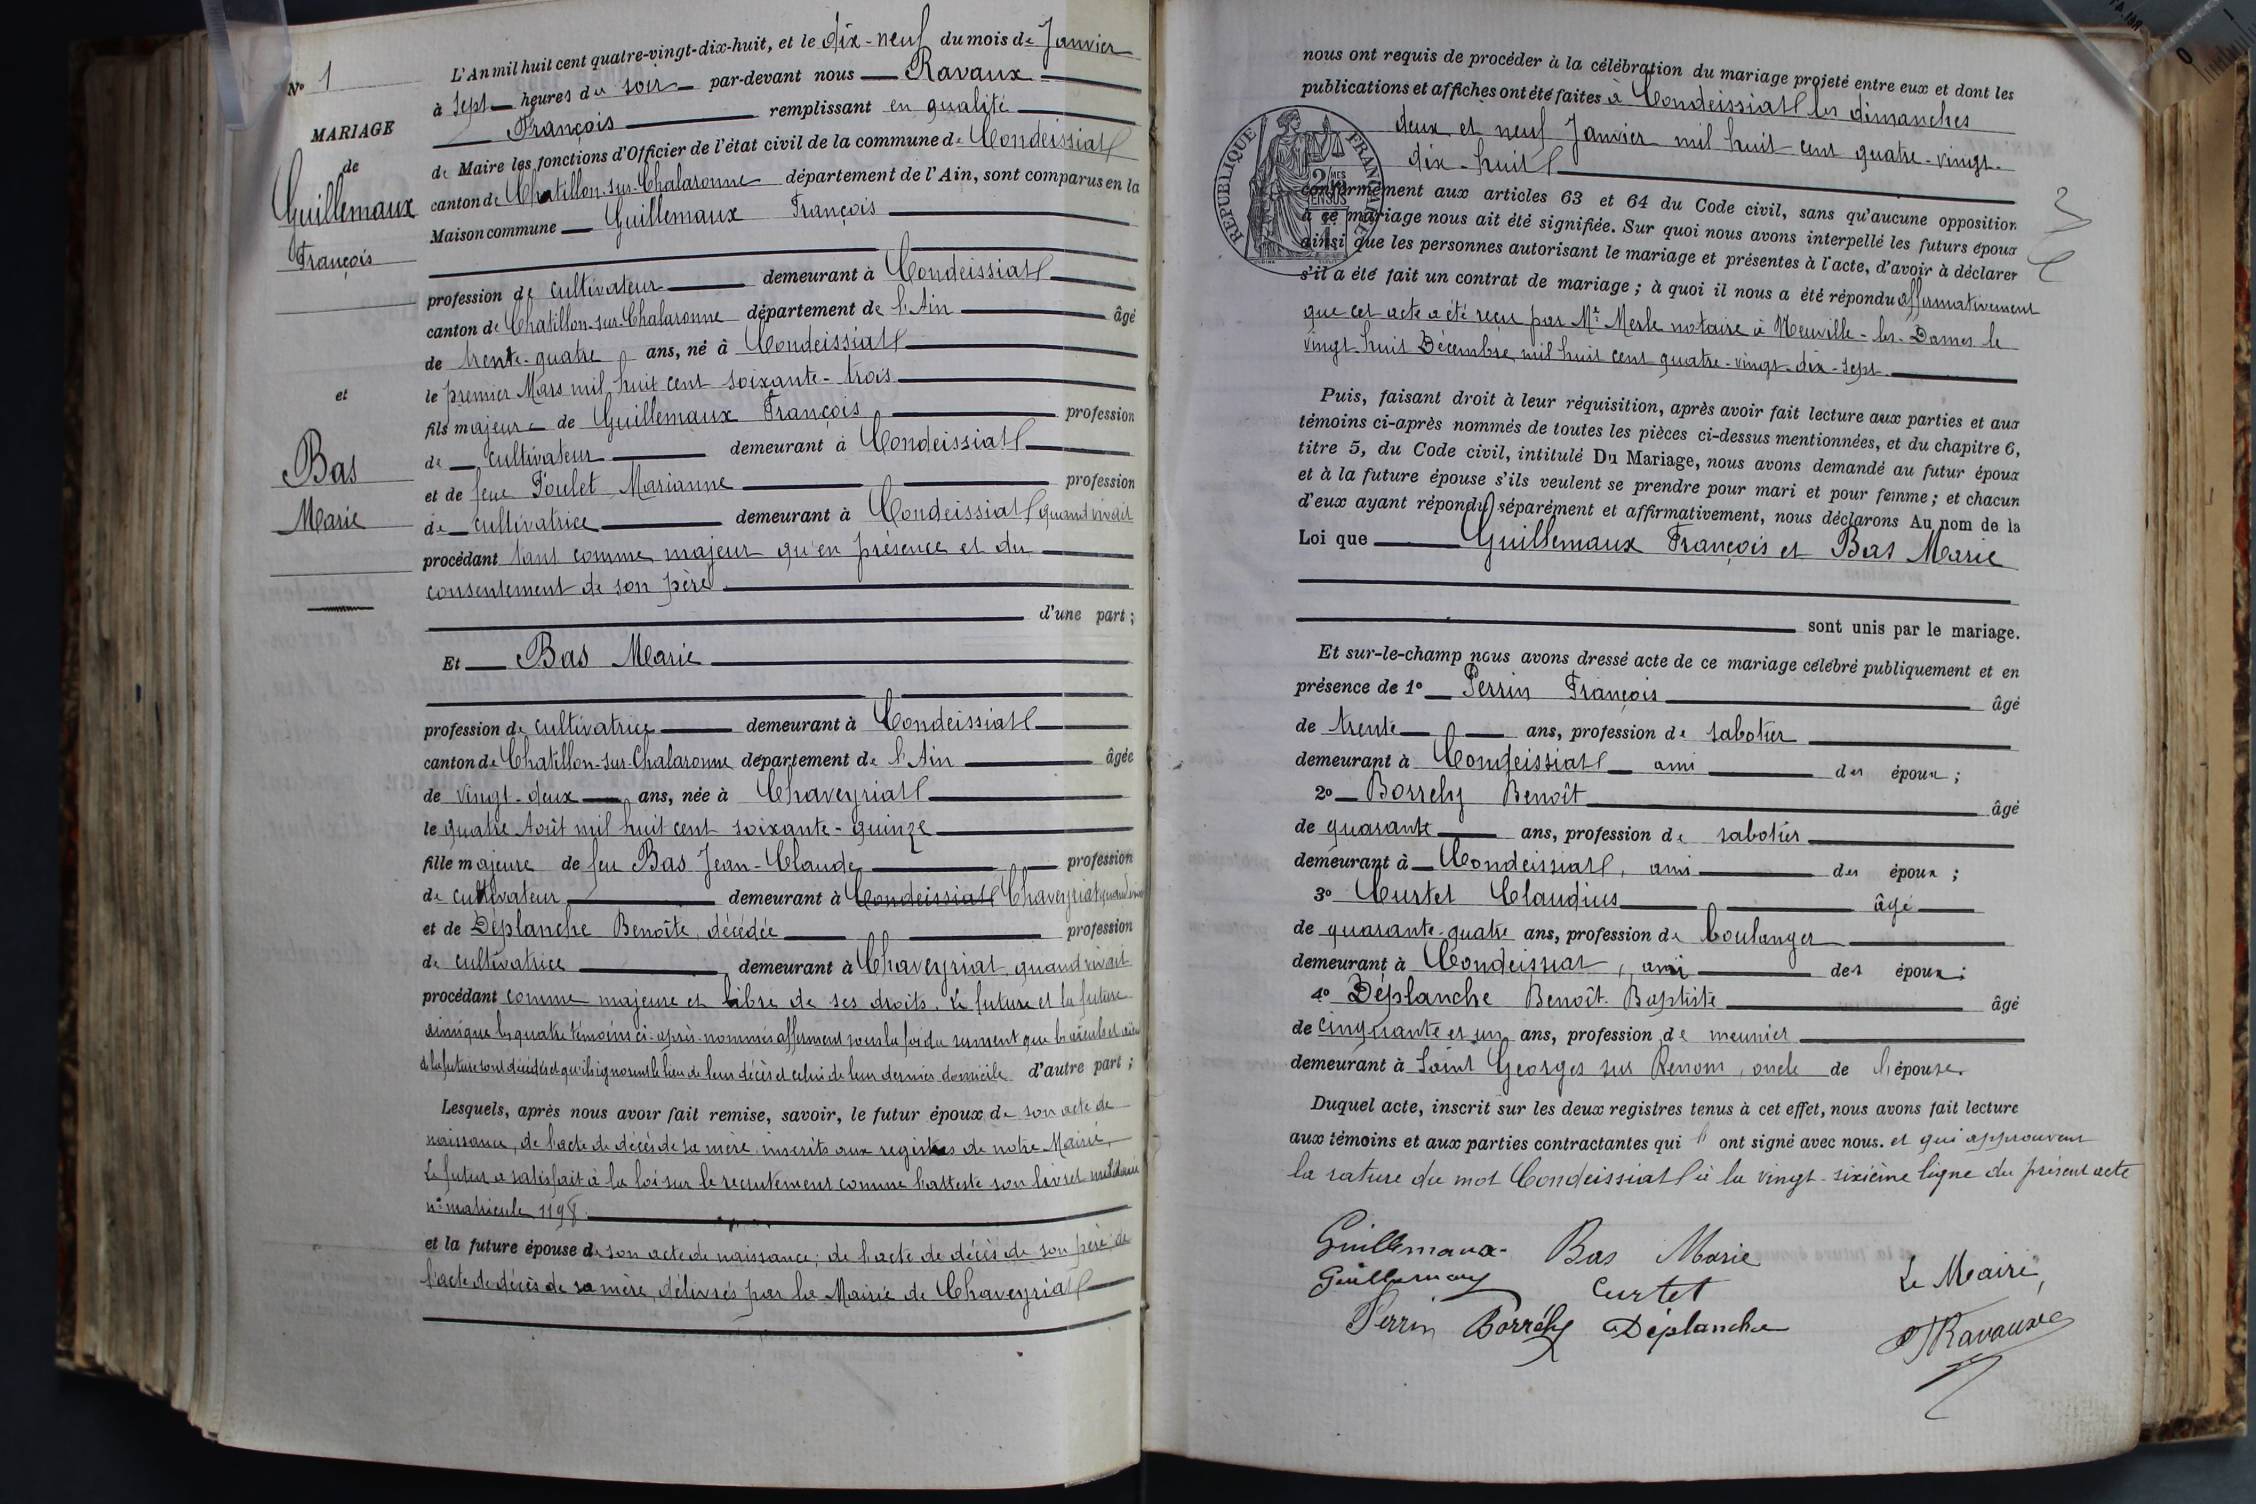 N° 1
MARIAGE
de
Guillemaux
François
et
Bas
Marie
L'An mil huit cent quatre-vingt-dix-huit, et le dix-neuf du mois de Janvier
à sept heures du soir par-devant nous Ravaux
François remplissant en qualité
de Maire les fonctions d'Officier de l'état civil de la commune de Condeissiat
canton de Chatillon-sur-Chalaronne département de l'Ain, sont comparus en la
Maison commune Guillemaux François
profession de cultivateur demeurant à Condeissiat
canton de Chatillon-sur-Chalaronne département de l'Ain âgé
de trente-quatre ans, né à Condeissiat
le premier Mars mil huit cent soixante-trois
fils majeur de Guillemaux François profession
de cultivateur demeurant à Condeissiat
et de feue Poulet Marianne profession
de cultivatrice demeurant à Condeissiat quand vivait
procédant tant comme majeur qu'en présence et du
consentement de son père
d'une part ;
Et Bas Marie
profession de cultivatrice demeurant à Condeissiat
canton de Chatillon-sur-Chalaronne département de l'Ain âgée
de vingt-deux ans, née à Chaveyriat
le quatre Août mil huit cent soixante-quinze
fille majeure de feu Bas Jean-Claude profession
de cultivateur demeurant à Condeissiat Chaveyriat quand vivait
et de Déplanche Benoîte, décédée profession
de cultivatrice demeurant à Chaveyriat quand vivait
procédant comme majeure et libre de ses droits. Le futur et la future
ainsi que les quatre témoins ci-après nommés affirment sous la foi du serment que les aïeuls et aïeules
de la future sont décédés et qu'ils ignorent le lieu de leur décès et celui de leur dernier domicile d'autre part ;
Lesquels, après nous avoir fait remise, savoir, le futur époux de son acte de
naissance, de l'acte de décès de sa mère inscrits aux registres de notre Mairie,
Le futur a satisfait à la loi sur le recrutement comme l'atteste son livret militaire
n° matricule 1198
et la future épouse de son acte de naissance ; de l'acte de décès de son père ; de
l'acte de décès de sa mère, délivrés par la Mairie de Chaveyriat
nous ont requis de procéder à la célébration du mariage projeté entre eux et dont les
publications et affiches ont été faites à Condeissiat les dimanches
deux et neuf Janvier mil huit cent quatre-vingt-
dix-huit
REPUBLIQUE FRANÇAISE
conformément aux articles 63 et 64 du Code civil, sans qu'aucune opposition
à ce mariage nous ait été signifiée. Sur quoi nous avons interpellé les futurs époux
ainsi que les personnes autorisant le mariage et présentes à l'acte, d'avoir à déclarer
s'il a été fait un contrat de mariage ; à quoi il nous a été répondu affirmativement
que cet acte a été reçu par Mr Merle notaire à Neuville-les-Dames le
vingt-huit Décembre mil huit cent quatre-vingt-dix-sept
Puis, faisant droit à leur réquisition, après avoir fait lecture aux parties et aux
témoins ci-après nommés de toutes les pièces ci-dessus mentionnées, et du chapitre 6,
titre 5, du Code civil, intitulé Du Mariage, nous avons demandé au futur époux
et à la future épouse s'ils veulent se prendre pour mari et pour femme ; et chacun
d'eux ayant répondu séparément et affirmativement, nous déclarons Au nom de la
Loi que Guillemaux François et Bas Marie
sont unis par le mariage.
Et sur-le-champ nous avons dressé acte de ce mariage célébré publiquement et en
présence de 1° Perrin François âgé
de trente ans, profession de sabotier
demeurant à Condeissiat ami des époux ;
2° Borrely Benoît âgé
de quarante ans, profession de sabotier
demeurant à Condeissiat, ami des époux ;
3° Curtet Claudius âgé
de quarante-quatre ans, profession de boulanger
demeurant à Condeissiat, ami des époux ;
4° Déplanche Benoît-Baptiste âgé
de cinquante et un ans, profession de meunier
demeurant à Saint Georges sur Renom, oncle de l'épouse.
Duquel acte, inscrit sur les deux registres tenus à cet effet, nous avons fait lecture
aux témoins et aux parties contractantes qui ont signé avec nous. et qui approuvent
la rature du mot Condeissiat à la vingt-sixième ligne du présent acte
Guillemaux Bas Marie
Guillemaux Curtet Le Maire,
Perrin Borrély Déplanche Ravaux